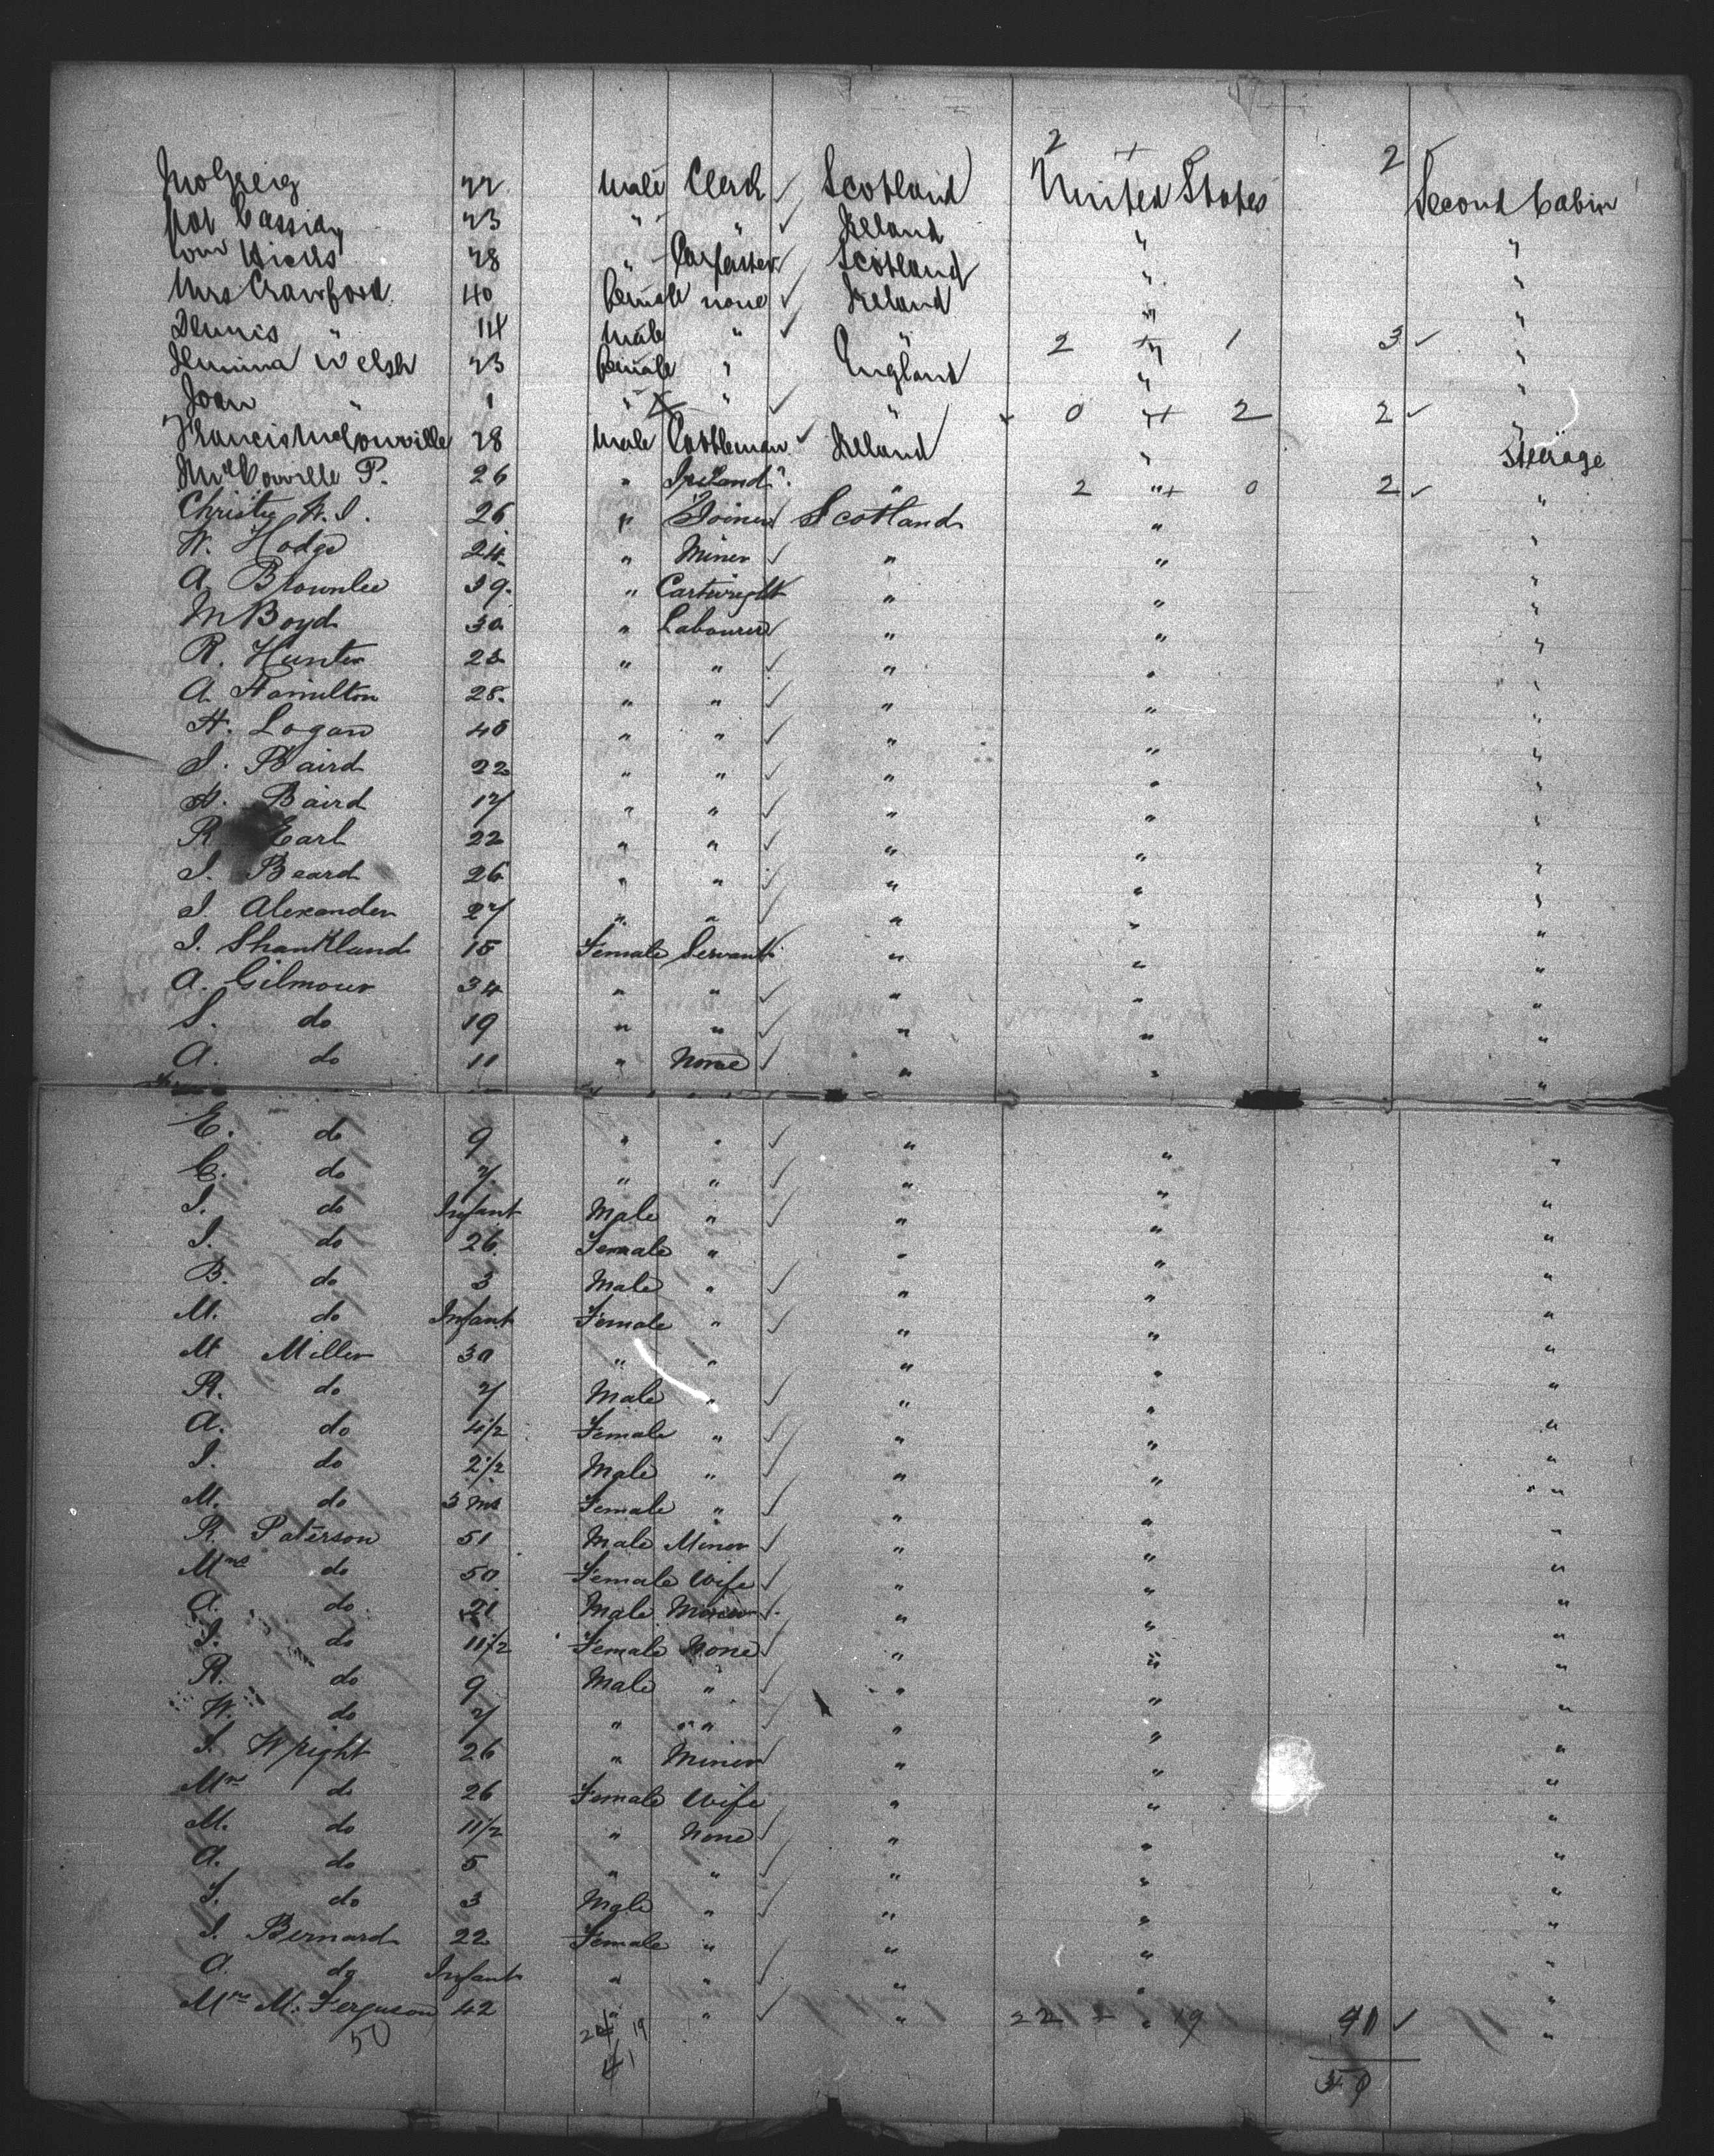 2 + 2
Jno Greig 22 Male Clerk ✓ Scotland United States Second Cabin
Pat Cassidy 23 " " ✓ Ireland " "
Hicks 28 " Scotland " "
Mrs Crawford 40 Female none ✓ Ireland " "
Dennis " 14 Male " ✓ " 2 + 1 3 ✓ "
Jemima Welsh 23 Female " England " "
Joan " 1 " " ✓ " 0 + 2 2 ✓ "
Francis McConville 28 Male Cattleman ✓ Ireland " Steerage
McConville P. 26 " Ireland " 2 " + 0 2 ✓ "
Christie W. J. 26 " Joiner Scotland " "
W. Hodge 24 " Miner ✓ " " "
A. Brownlee 39. " Cartwright " " "
M Boyd 30 " Labourer " " "
R. Hunter " " ✓ " " "
A. Hamilton 28. " " ✓ " " "
H. Logan 40 " " ✓ " " "
J. Baird 22 " " ✓ " " "
H. Baird 17 " " ✓ " " "
R Earl 22 " " ✓ " " "
J. Beard 26 " " ✓ " " "
J. Alexander 27 " " ✓ " " "
J. Shankland 15 Female Servant " " "
A. Gilmour 34 " " ✓ " " "
S. do 19 " " ✓ " " "
A. do 11 " None ✓ " " "
E. do 9 " " ✓ " " "
C. do 7 " " ✓ " " "
J. do Infant Male " ✓ " " "
J. do 26 Female " " " "
B. do 3 Male " ✓ " " "
M. do Infant Female " ✓ " " "
M Miller 30 " " " " "
R. do 7 Male " ✓ " " "
A. do 4 1/2 Female " ✓ " " "
J. do 2 1/2 Male " ✓ " " "
M. do 3 ms Female " ✓ " " "
R. Paterson 51 Male Miner ✓ " " "
Mrs do 50 Female Wife ✓ " " "
A. do 21 Male Miner ✓ " " "
J. do 11 1/2 Female None ✓ " " "
R. do 9 Male " ✓ " " "
W. do 7 " " ✓ " " "
J. Wright 26 " Miner ✓ " " "
Mrs do 26 Female Wife " " "
M. do 11 1/2 " None ✓ " " "
A. do 5 " " ✓ " " "
J. do 3 Male " ✓ " " "
J. Bernard 22 Female " " " "
A. do Infant " " ✓ " " "
Mrs M. Ferguson 42 " " ✓ " 22 + " 19 41 ✓ "
50 19 50